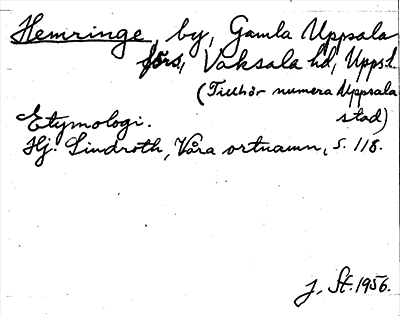 Hemringe, by, Gamla Uppsala
förs, Vaksala hd, Upps.l.
(Tillhör numera Uppsala
stad)
Etymologi.
Hj. Lindroth, Våra ortnamn, s. 118.
J. St. 1956.